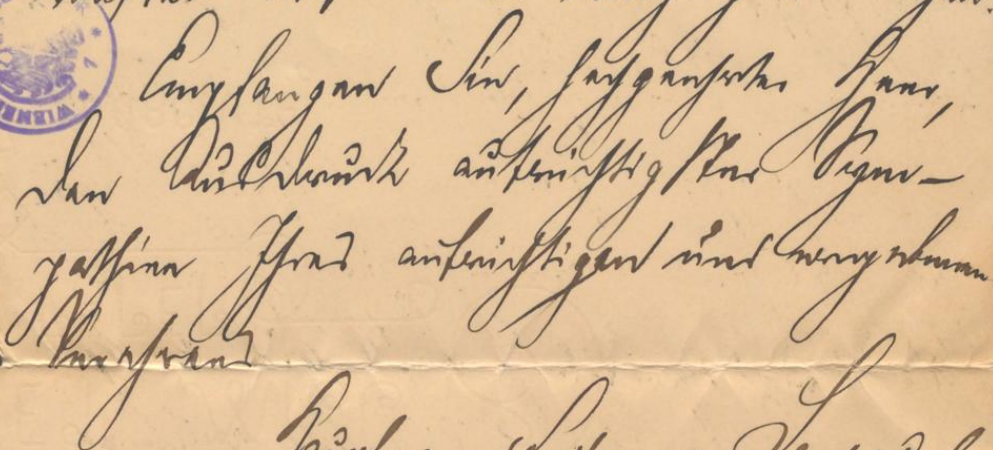 WIENER
Empfangen Sie, hochgeehrter Herr,
den Ausdruck aufrichtigster Sym-
pathien Ihres aufrichtigen und ergebenen
Verehrers